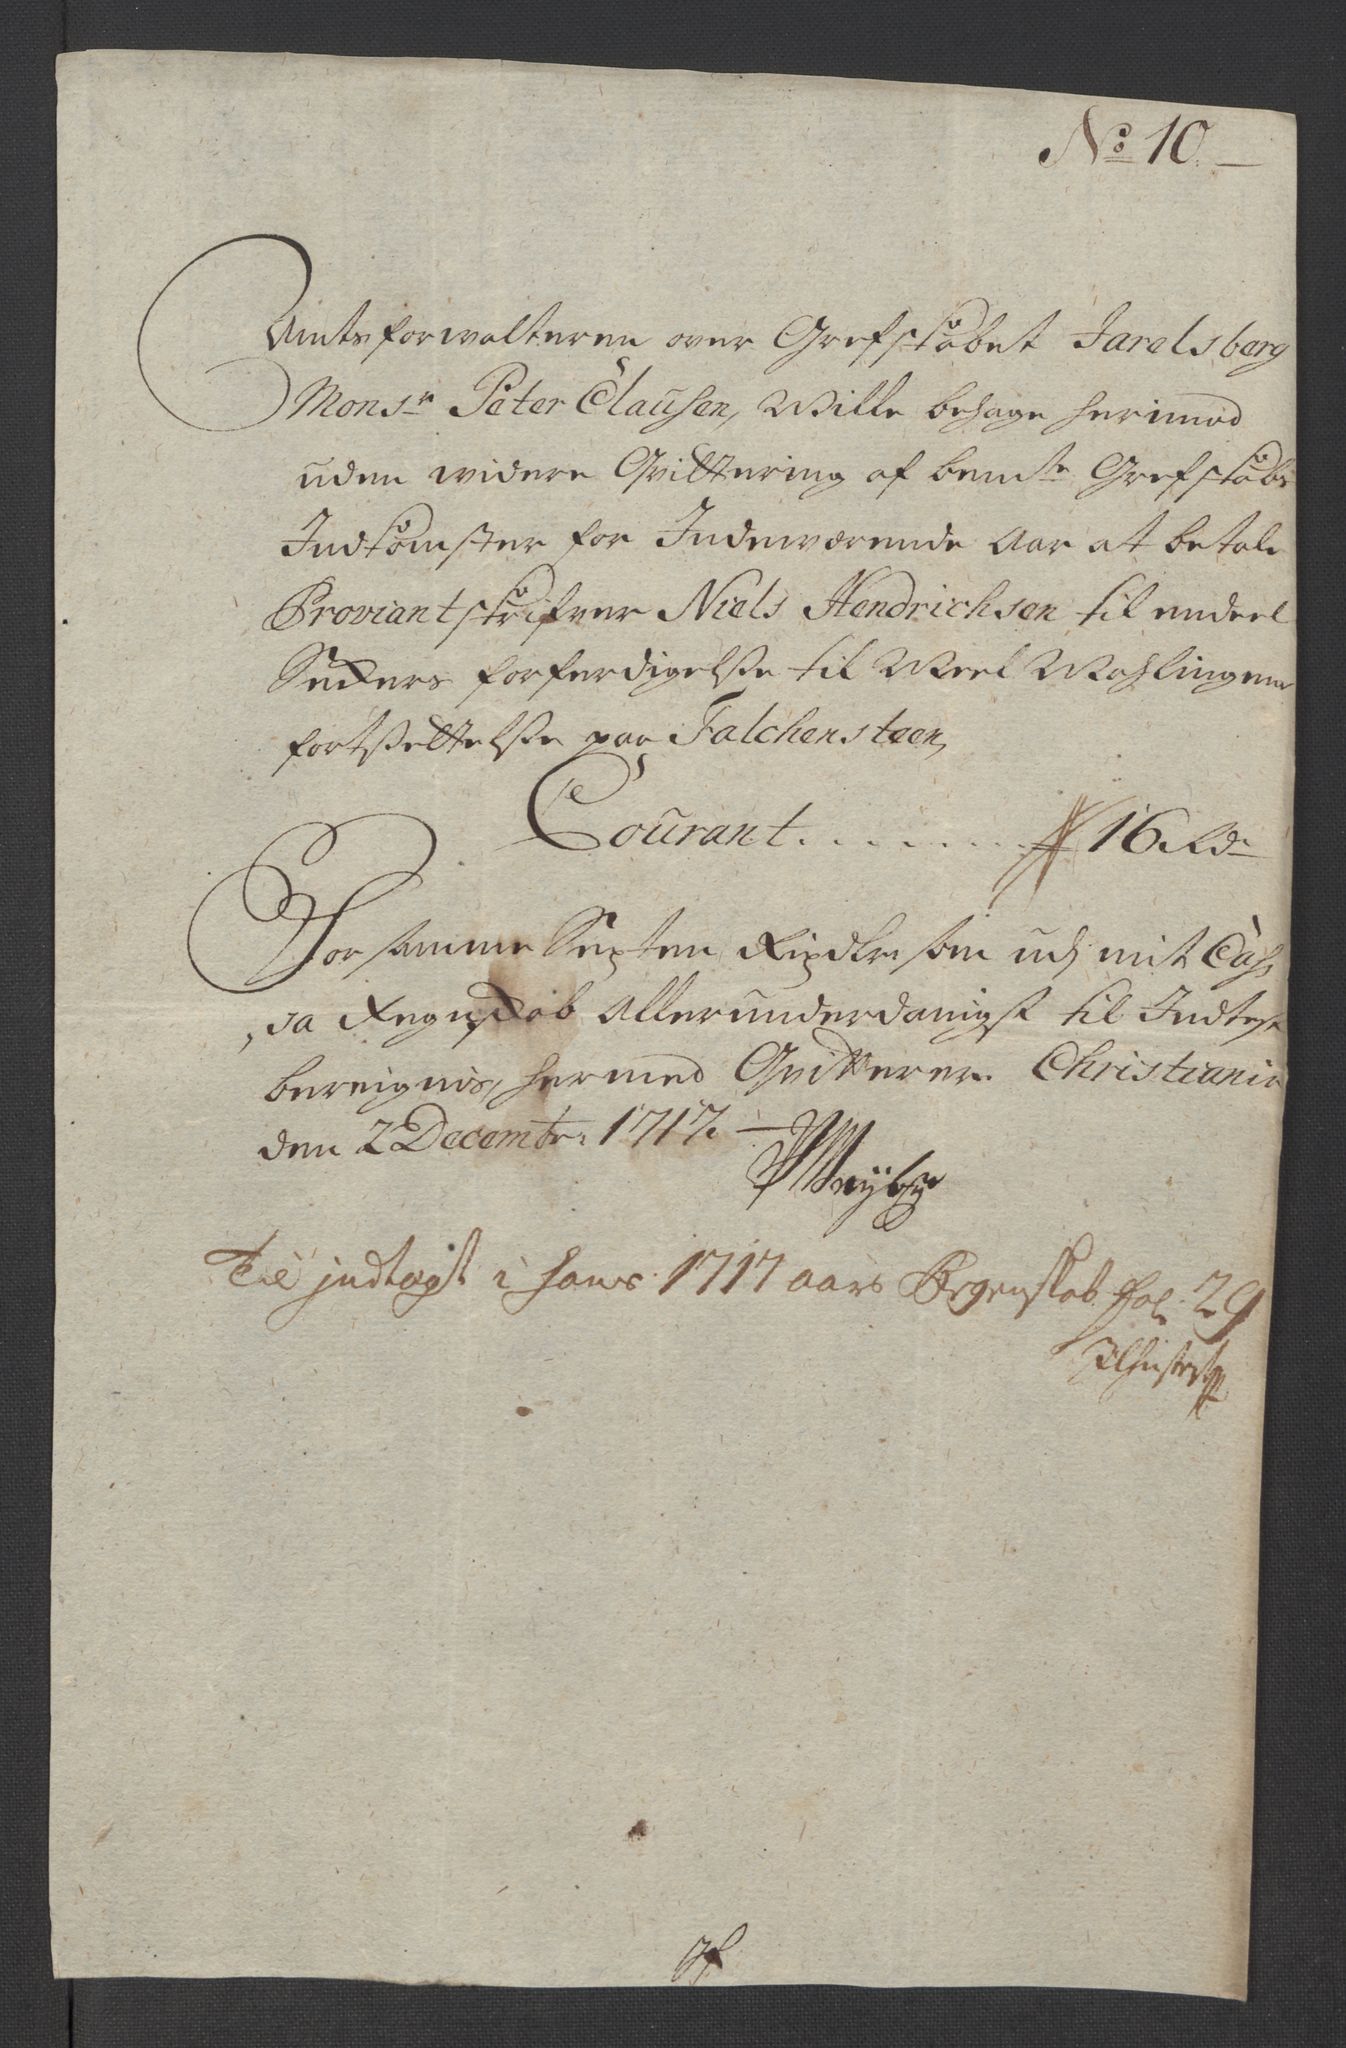 No 10.
Amtsforwalteren over Grefskabet Jarelsberg
Monsr Peter Clausen, Wille behage herimod
uden widere Qvittering af bemte Grefskabs
Indkomster for Indeværende Aar at betale
Proviantskrifver Niels Hendrichsen til endeel
Seckers forferdigelse til Meel Mahlingens
fortsettelse paa Falchensteen,
Courant . . . . . . . . 16 Rdr
For samme Sexten Rixdlr som udj mit Cass
,sa Regnskab Allerunderdanigst til Indtegt
bereignis, hermed Qvitterer. Christiania
den 2 Decembr: 1717.
til indtægt i hans 1717 aars Regenskab fol: 29